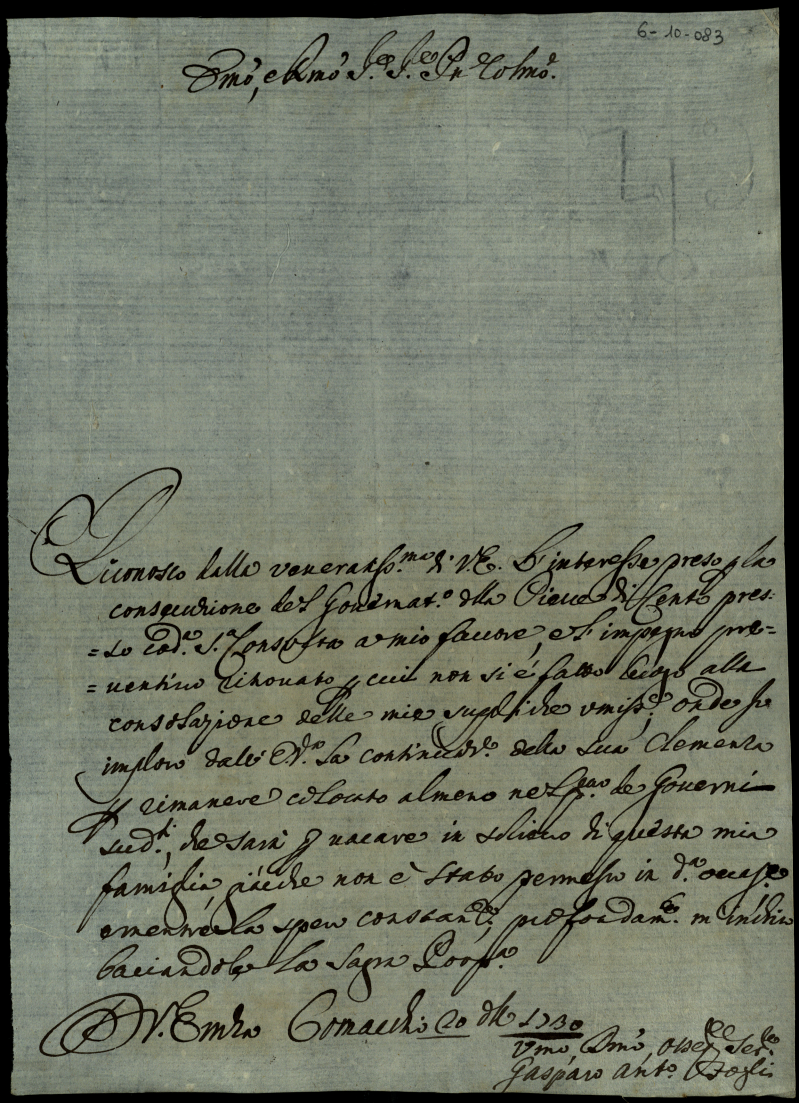 6-10-083
Emo, e Rmo Sr. Sr. Pn. Colmo.
Riconosco dalla veneratiss.ma di V.E. l'interesse preso p la
consecuzione del Governat.o della Pieve di Cento pres=
=so cod.a S.a Consulta a mio favore, e l'impegno pre=
=ventivo ritrovato p cui non si è fatto luogo alla
consolazione delle mie suppliche umiss.e, onde
imploro dall' E.V.a la continuaz.e della sua Clemenza
p rimanere colocato almeno nel p.mo de Governi
sud.ti, che sarà p vacare in solievo di questa mia
famiglia, giacche non è stato permesso in d.a occas.e
e mentre la spero constan.te, profondam.te m'inchino
baciandole la Sagra Porp.a
D V. Emza Comacchio 20 1730
Umo, Dmo, osseq.mo Ser.re
Gasparo Ant.o